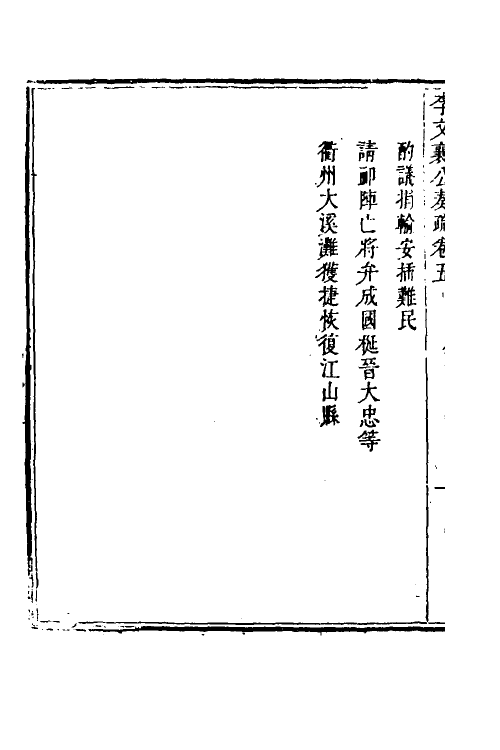 李文襄公奏疏卷五
酌議捐輸安插難民
請卹陣亡將弁成國梴晉大忠等
衢州大溪灘獲捷恢復江山縣